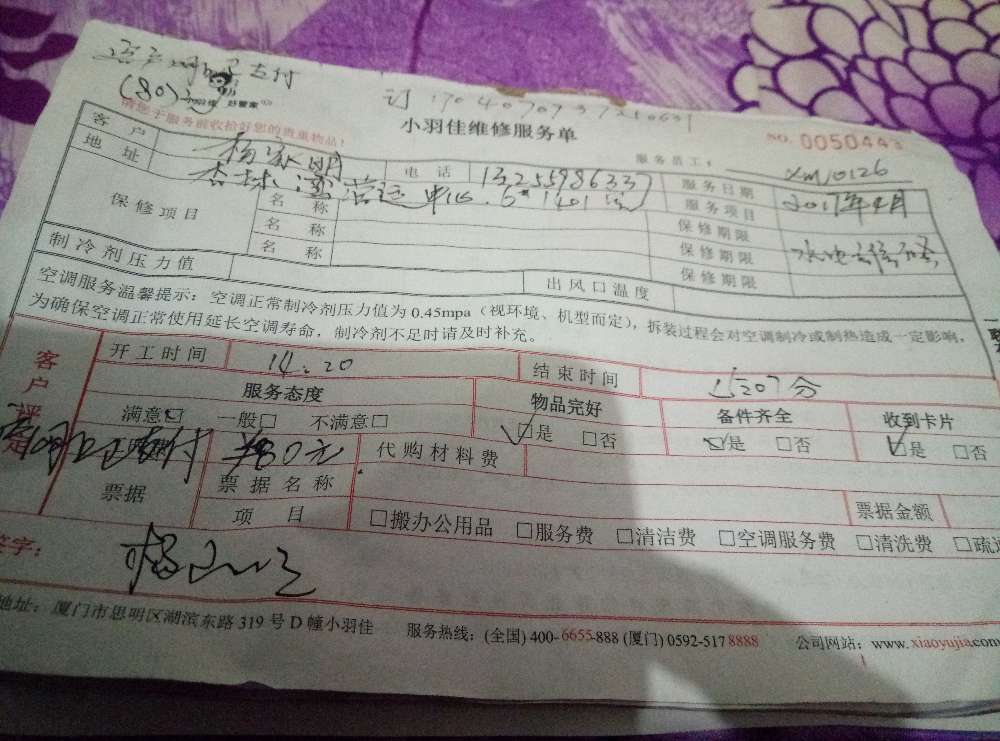 支付
(80)元
请您于服务前收拾好您的贵重物品!
小羽佳维修服务单
NO. 0050443
服务员工: XM10126
客户 杨 明 电话 13255986337 服务日期 2017年4月
地址 杏林湾营运中心. 6# 1401室 服务项目
保修项目 名称 保修期限
名称 保修期限
名称 保修期限
制冷剂压力值 出风口温度
空调服务温馨提示:空调正常制冷剂压力值为0.45mpa(视环境、机型而定),拆装过程会对空调制冷或制热造成一定影响,
为确保空调正常使用延长空调寿命,制冷剂不足时请及时补充。
客户评定
开工时间 14:20 结束时间 1507分
服务态度 物品完好 备件齐全 收到卡片
满意□ 一般□ 不满意□ □是 □否 □是 □否 □是 □否
支付 80元 代购材料费
票据 票据名称 票据金额
项目 □搬办公用品 □服务费 □清洁费 □空调服务费 □清洗费 □疏
签字:
地址:厦门市思明区湖滨东路319号D幢小羽佳 服务热线:(全国)400-6655-888 (厦门)0592-5178888 公司网站:www.xiaoyujia.com